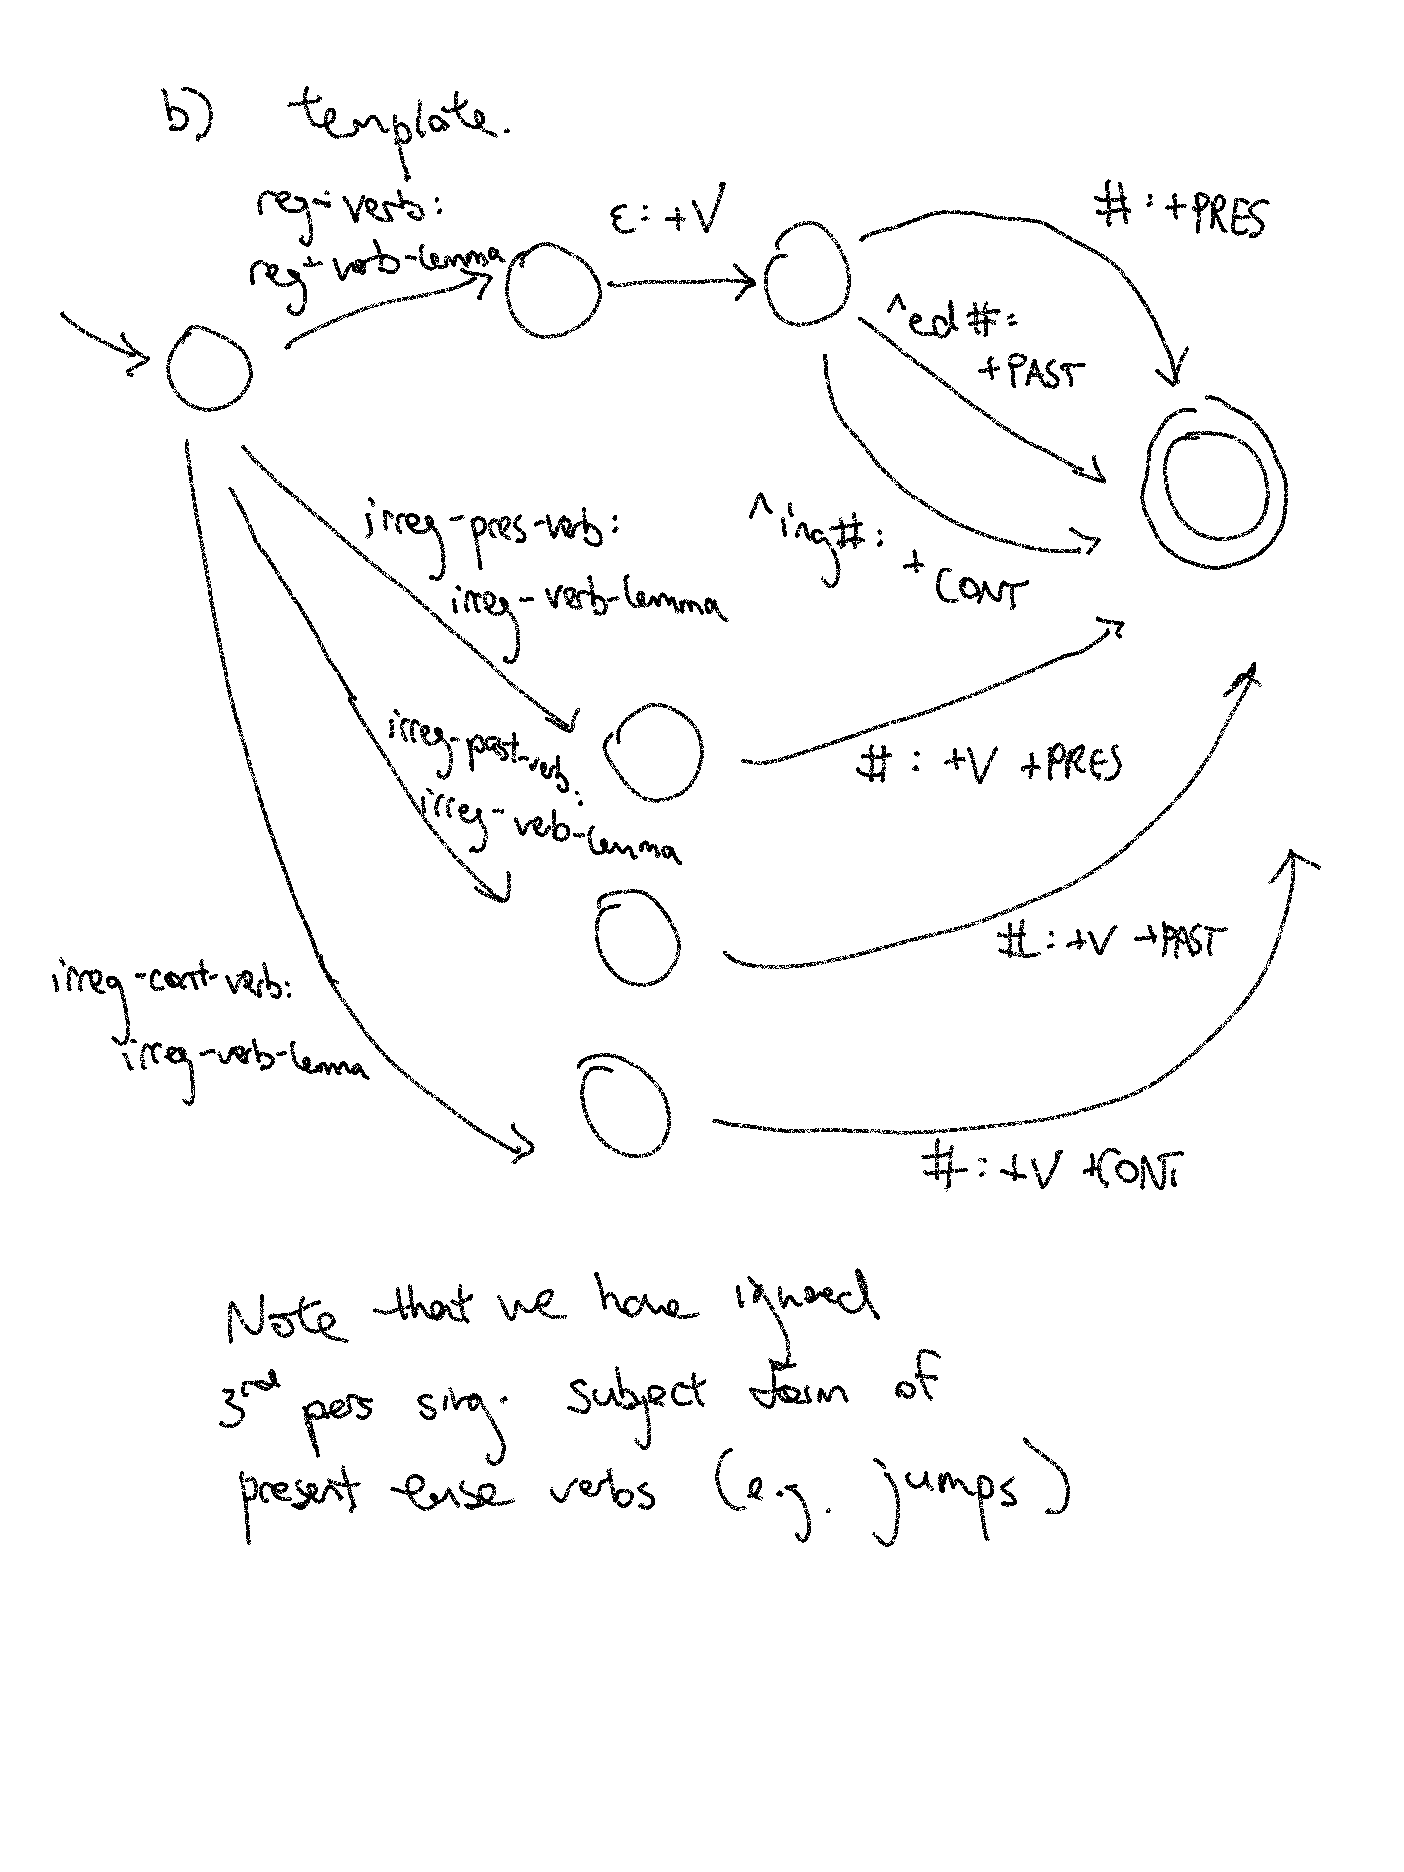 b) template.
reg-verb:
reg-verb-lemma
ε: +V
#: +PRES
^ed#:
+PAST
^ing#:
+CONT
irreg-pres-verb:
irreg-verb-lemma
#: +V +PRES
irreg-past-verb:
irreg-verb-lemma
#: +V +PAST
irreg-cont-verb:
irreg-verb-lemma
#: +V +CONT
Note that we have ignored
3rd pers sing. subject form of
present tense verbs (e.g. jumps)